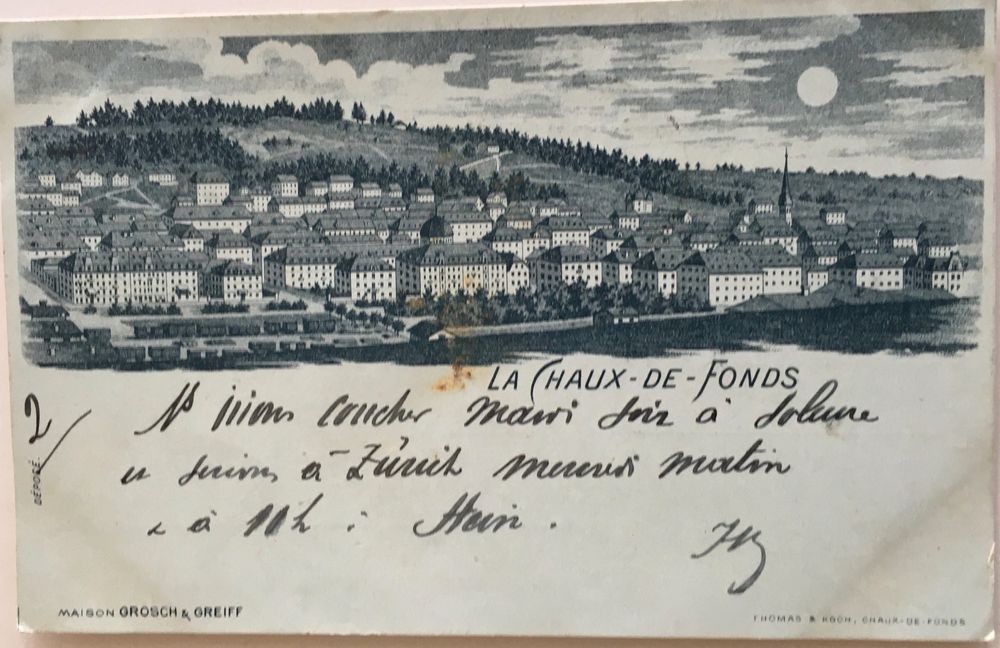 LA CHAUX-DE-FONDS
2
Ns irions coucher Mardi soir à Soleure
et serions à Zürich mercredi matin
à 11h : Stein.
DÉPOSÉ
MAISON GROSCH & GREIFF
THOMAS & KOCH, CHAUX-DE-FONDS